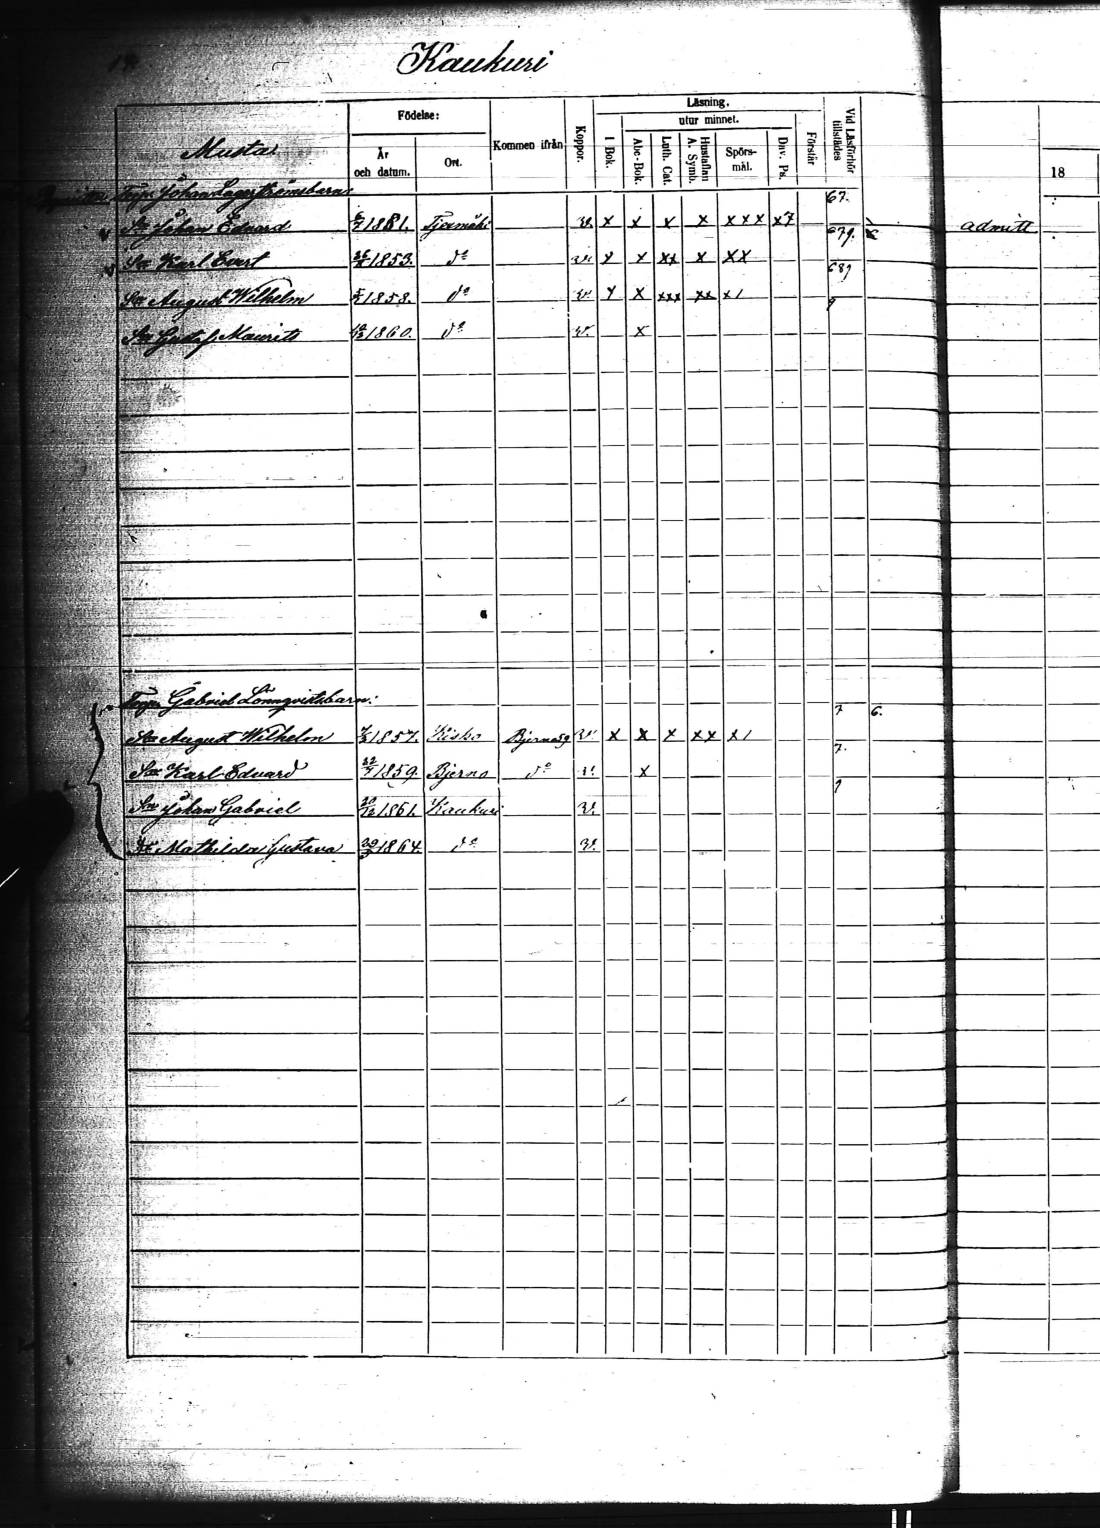 Kaukuri
Musta
Födelse:
År och datum.
Ort.
Kommen ifrån
Koppor.
Läsning.
I Bok.
utur minnet.
Abc-Bok.
Luth. Cat.
Hustaflan A. Symb.
Spörs-mål.
Div. Ps.
Förstår
Vid Läsförhör tillstädes
18
Johan Lagerströmsbarn
67.
Son Johan Eduard 1851. Tjermäki v. x x x x x x x x7 admitt
679.
Son Karl Evert 1853. do v. x x xx x xx
689
Son August Wilhelm 1858. do v. x x xxx xx x1
9
Son Gustaf Maurits 1860. do v. x
Gabriel Lönnqvistsbarn:
7 6.
Son August Wilhelm 1857. Kisko Bjerno v. x x x xx x1
7.
Son Karl Eduard 22/7 1859. Bjerno do v. x
9
Son Johan Gabriel 1861. Kaukuri v.
Mathilda Gustava 1864. do v.